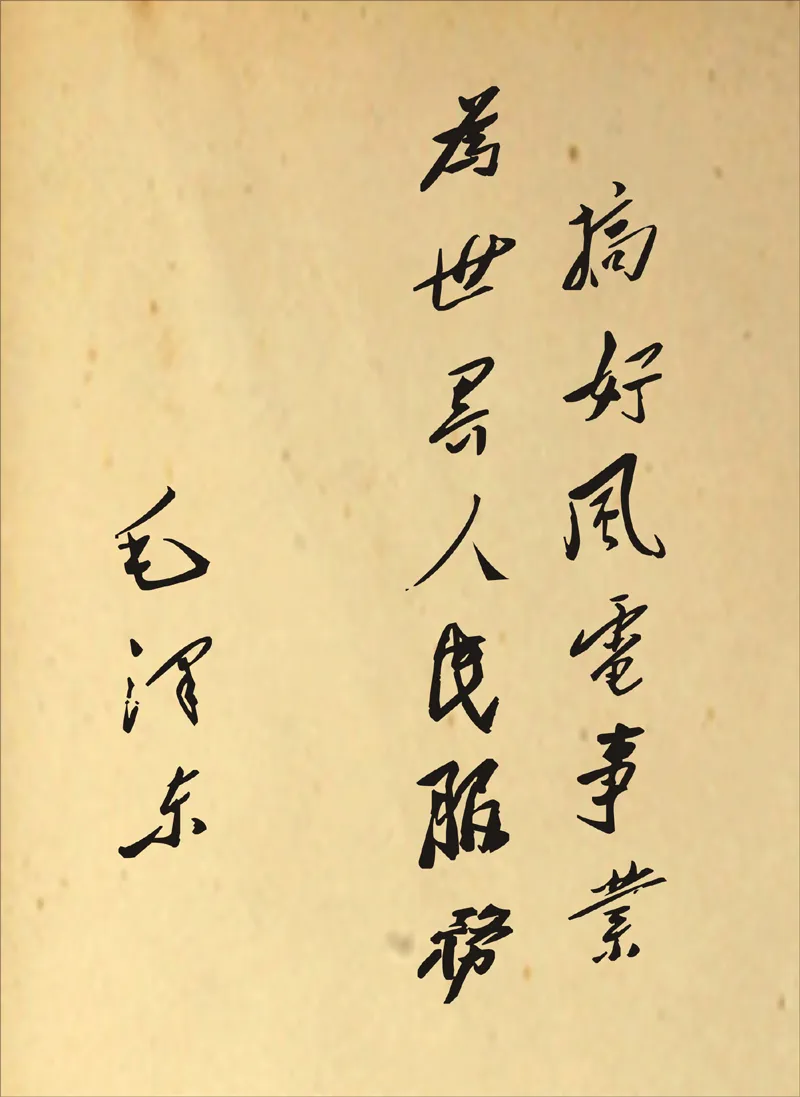 搞好風電事業
為世界人民服務
毛泽东